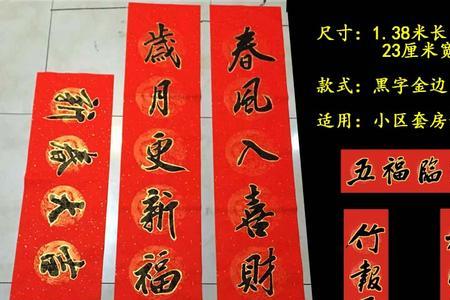 春风入喜財
歲月更新福
新春大吉
尺寸：1.38米长
23厘米宽
款式：黑字金边
适用：小区套房
五福臨
竹報